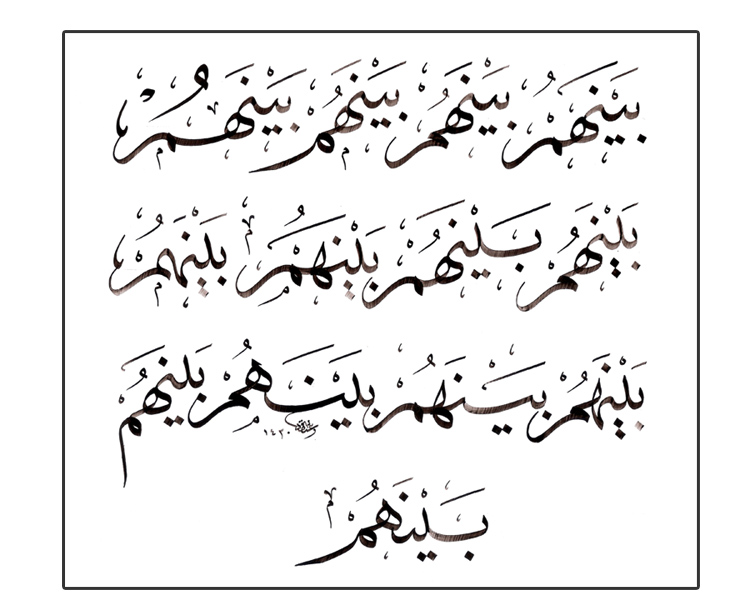 بينهم بينهم بينهم بينهم
بينهم بينهم بينهم بينهم
بينهم بينهم بينهم بينهم
١٤٣٠
بينهم